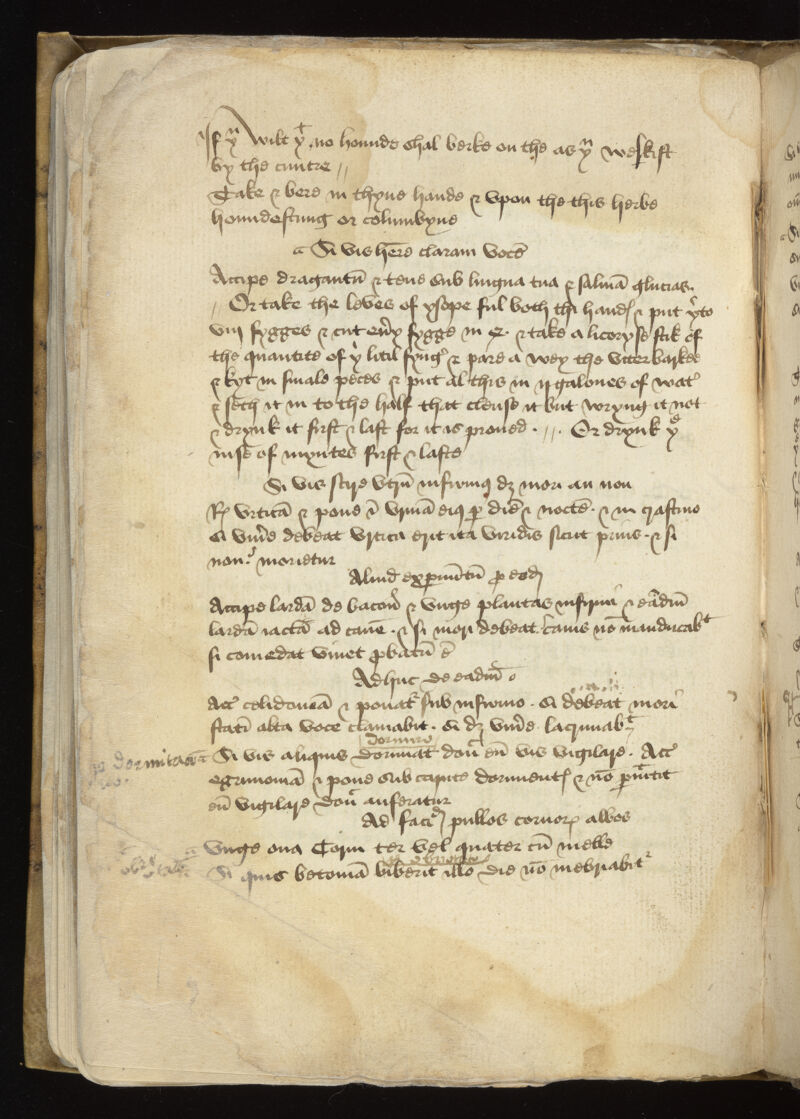 If yu Wilt yt no hounde shal berke on the as yu Walkist
by the cuntre //
Take & bere in thyne hande & vpon the this herbe
houndestung or columbyne
Si vis here claram vocē
Accipe dragantū & tene sub lingua tua & saliuā glucias.
// Or take the leves of ysope ful both thi hand & put yrto
viij fygges & cut eūy fygge in & take a licoryse stik of
the quantite of yi litil fyngr & pare a wey the vtter barke
& kyt in smale peces & put al this in ij galones of watr
& seth it in to the half that clense it but wryng it not
& drynk it first & last for it is proued . // . Or drynk ye
iuse of myntes first & laste
Si vis scire vtrū infirmus dz mori an non
Rx vrticā & pone ī vrinā eiꝰ p diē & noctē . & in crastino
si viūe debeat vrtica erit ita viridis sicut prius . & si
non . morietur
Aliud expimētū p eodē
Accipe lardā de bacon & vnge plantas infirmi & eādm
lardā iactā ad canē . & si mori debeat canis nō manducabt
si comedat viuet pbatū ē
Adhuc de eadm
Accr celidoniā & ponatr sub infirmo . si debeat mori
statī alta voce clamabit . si dz viūe lacrimabr
dormire
Si vis aliquis dormiat don eū vis vigilare . Accr
egrimoniā & pone sub capite dormientis & nō pmittit
eū vigilare donr auferatur
Ad faciēd pullos coruorū albos
Vnge oua Corui ter vel quater cū melle
Si quis betoniā biberit illo die nō inebriabitr